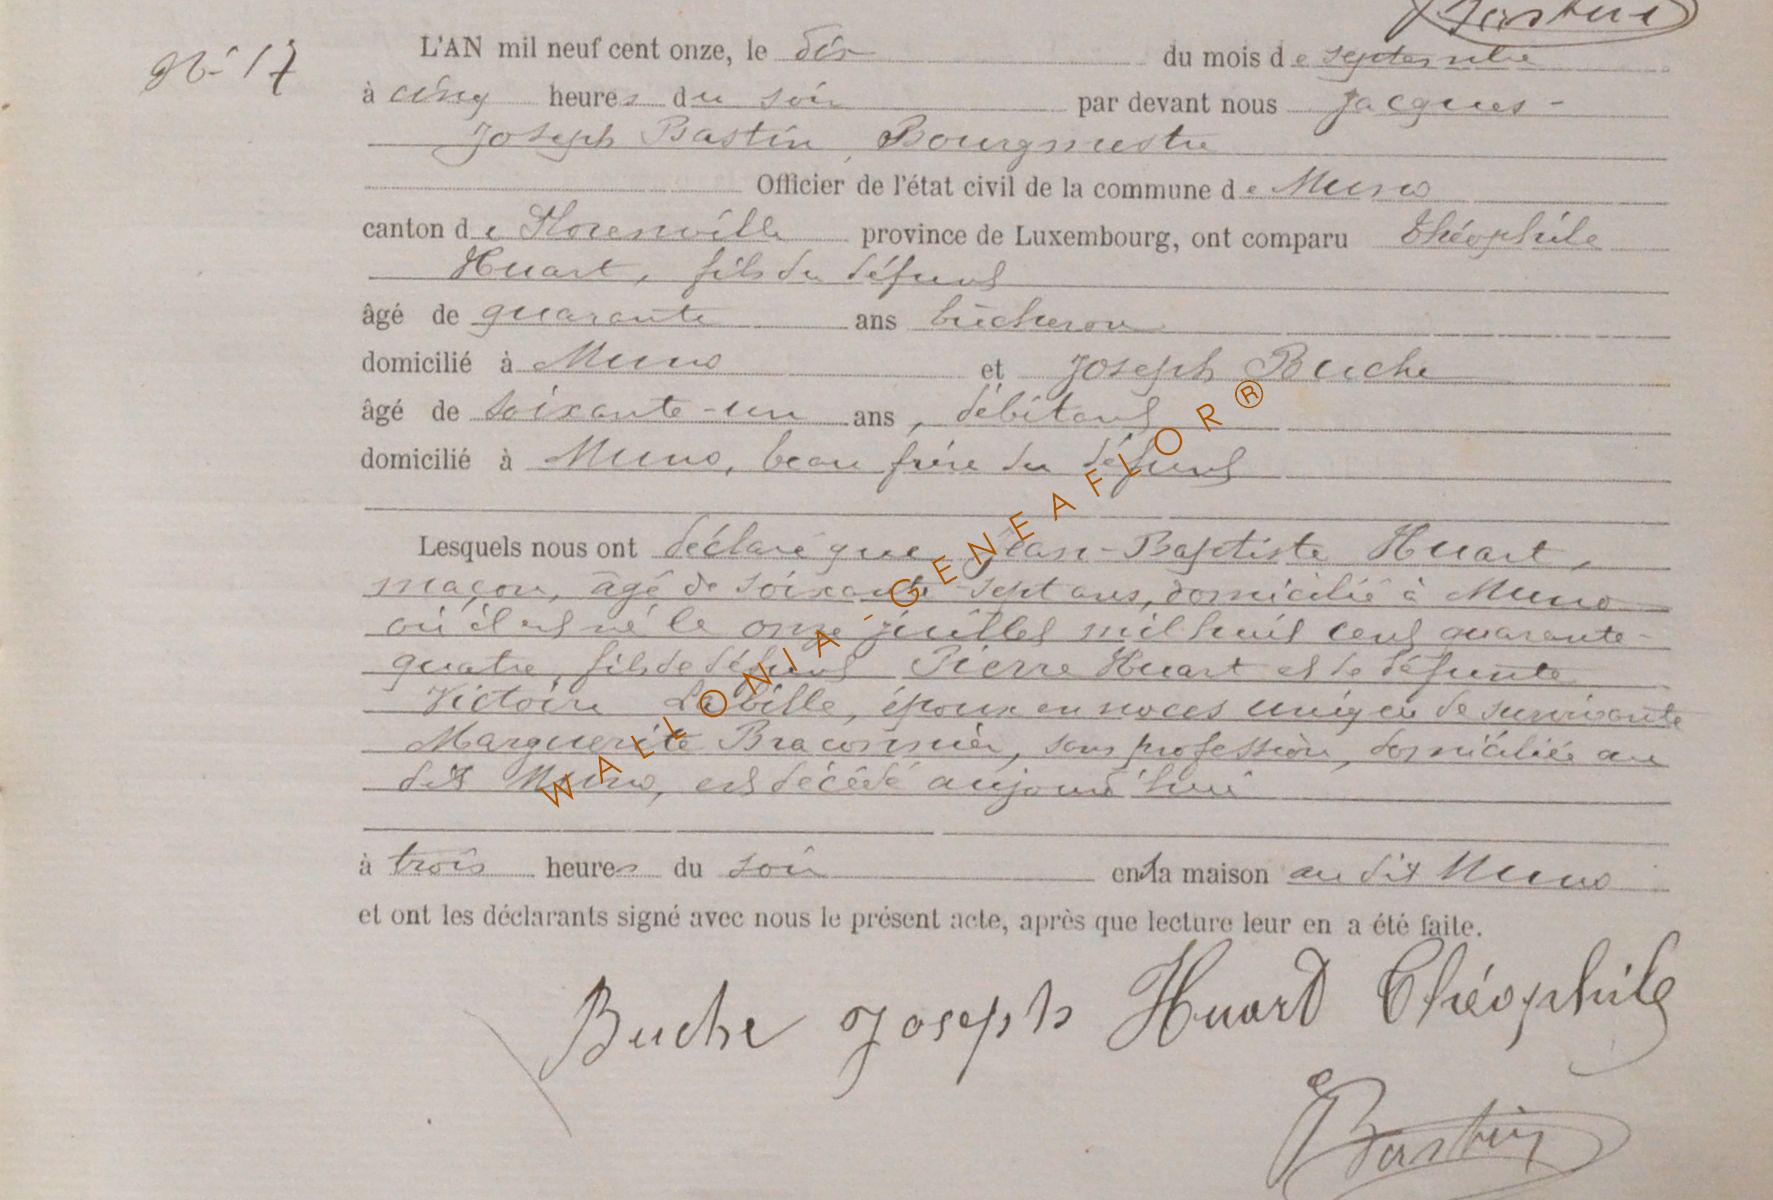 Bastin
N° 17
L'AN mil neuf cent onze, le dix du mois de septembre
à cinq heures du soir par devant nous Jacques-
Joseph Bastin, Bourgmestre
Officier de l'état civil de la commune de Muno
canton de Florenville province de Luxembourg, ont comparu Théophile
Huart, fils du défunt
âgé de quarante ans bûcheron
domicilié à Muno et Joseph Buche
âgé de soixante-un ans, débitant
domicilié à Muno, beau frère du défunt
Lesquels nous ont déclaré que Jean-Baptiste Huart,
maçon, âgé de soixante sept ans, domicilié à Muno
où il est né le onze juillet mil huit cent quarante-
quatre, fils de défunt Pierre Huart et de défunte
Victoire Labille, époux en noces uniques de survivante
Marguerite Braconnier, sans profession, domiciliée au
dit Muno, est décédé aujourd'hui
à trois heures du soir en sa maison au dit Muno
et ont les déclarants signé avec nous le présent acte, après que lecture leur en a été faite.
Buche Joseph Huart Théophile
Bastin
WALLONIA-GENEAFLOR®